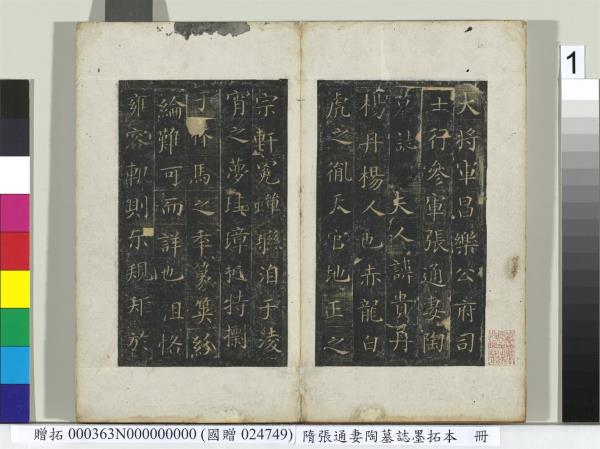 大將軍昌樂公府司
士行參軍張通妻陶
墓誌 夫人諱貴丹
楊丹楊人也赤龍白
虎之胤天官地正之
宗軒冕蟬聯洎于淩
宵之夢
馬之季篆筭紛
綸難可而詳也且恪
雍容軌則示規矩於
1
贈拓 000363N000000000 (國贈 024749) 隋張通妻陶墓誌墨拓本 冊